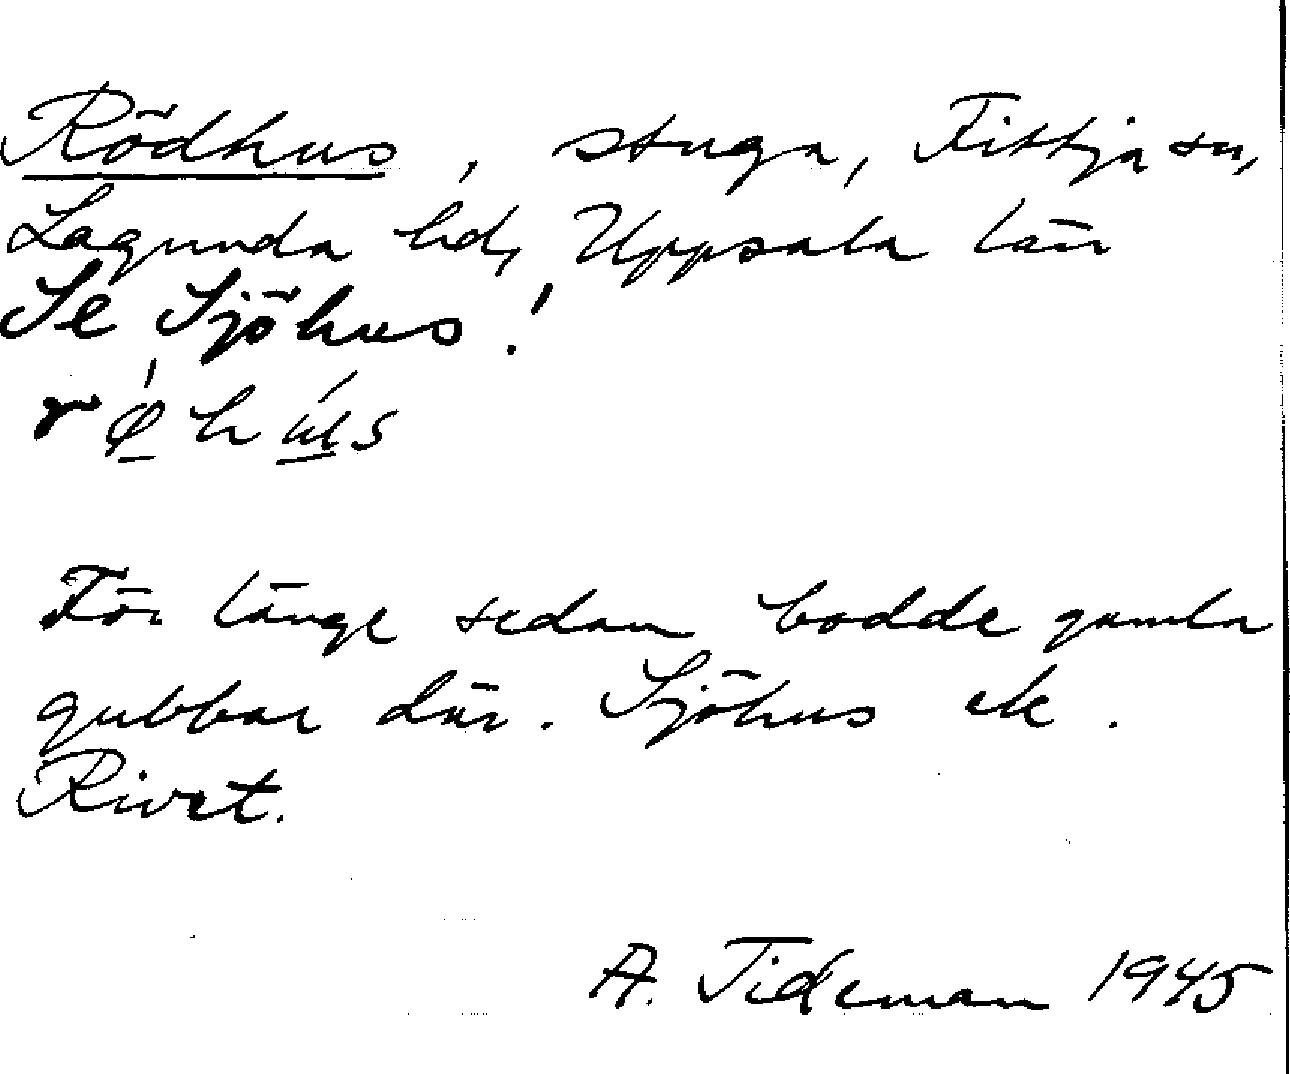 Rödhus, stuga, Fittja sn,
Lagunda hd, Uppsala län
Se Sjöhus!
För länge sedan bodde gamla
gubbar där. Sjöhus ek.
Rivet.
A. Tideman 1945